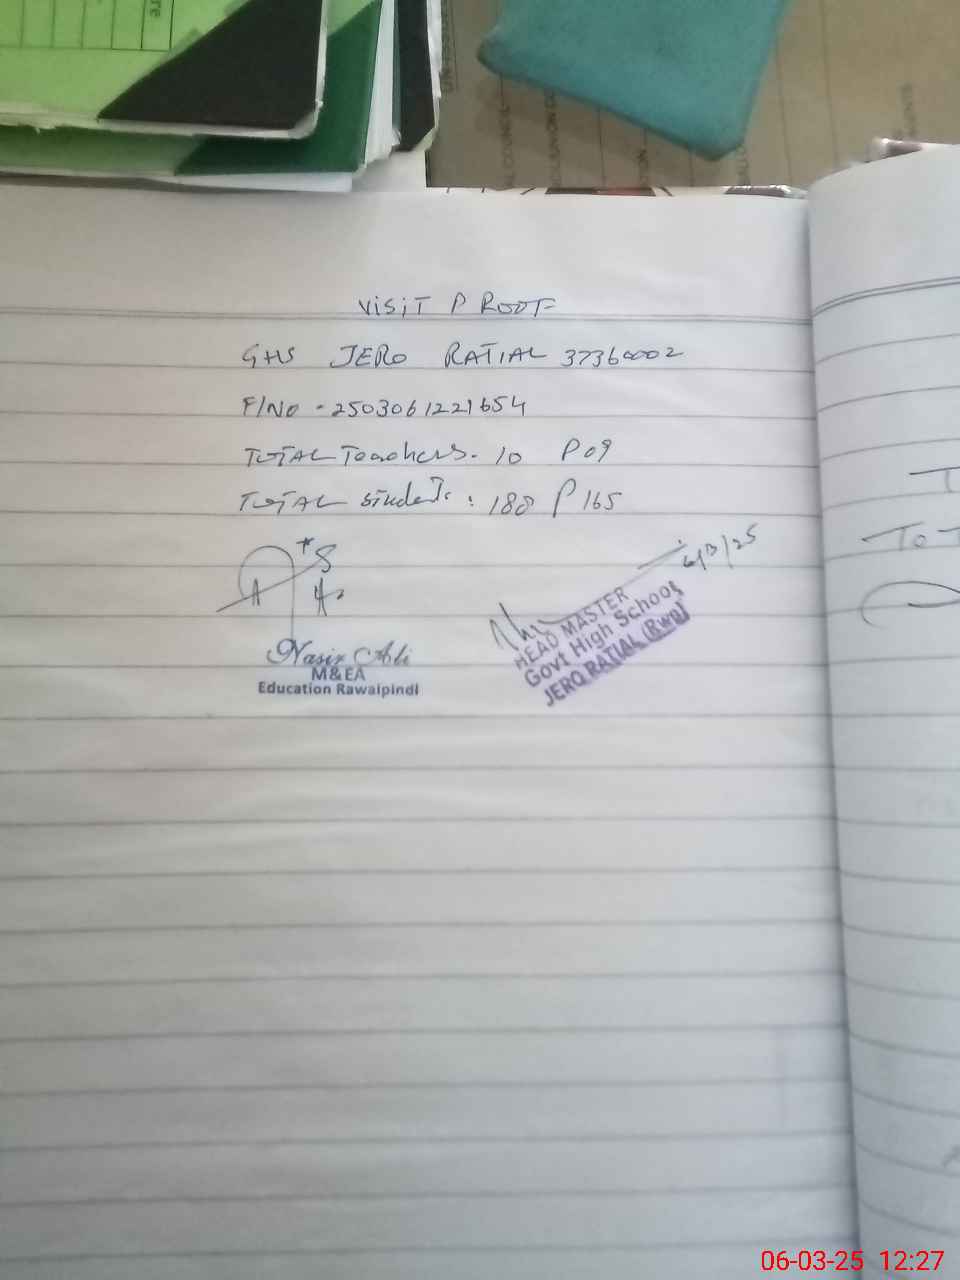 VISIT PROOF
GHS JERO RATIAL 37360002
F/NO - 2503061221654
TOTAL Teachers. 10 P 09
TOTAL Students : 180 P 165
6/3/25
Nasir Ali
M&EA
Education Rawalpindi
HEAD MASTER
Govt High School
JERO RATIAL (Rwp)
TO T
06-03-25 12:27